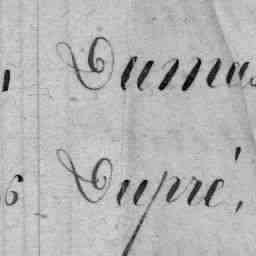 1 Dumas
6 Dupré,